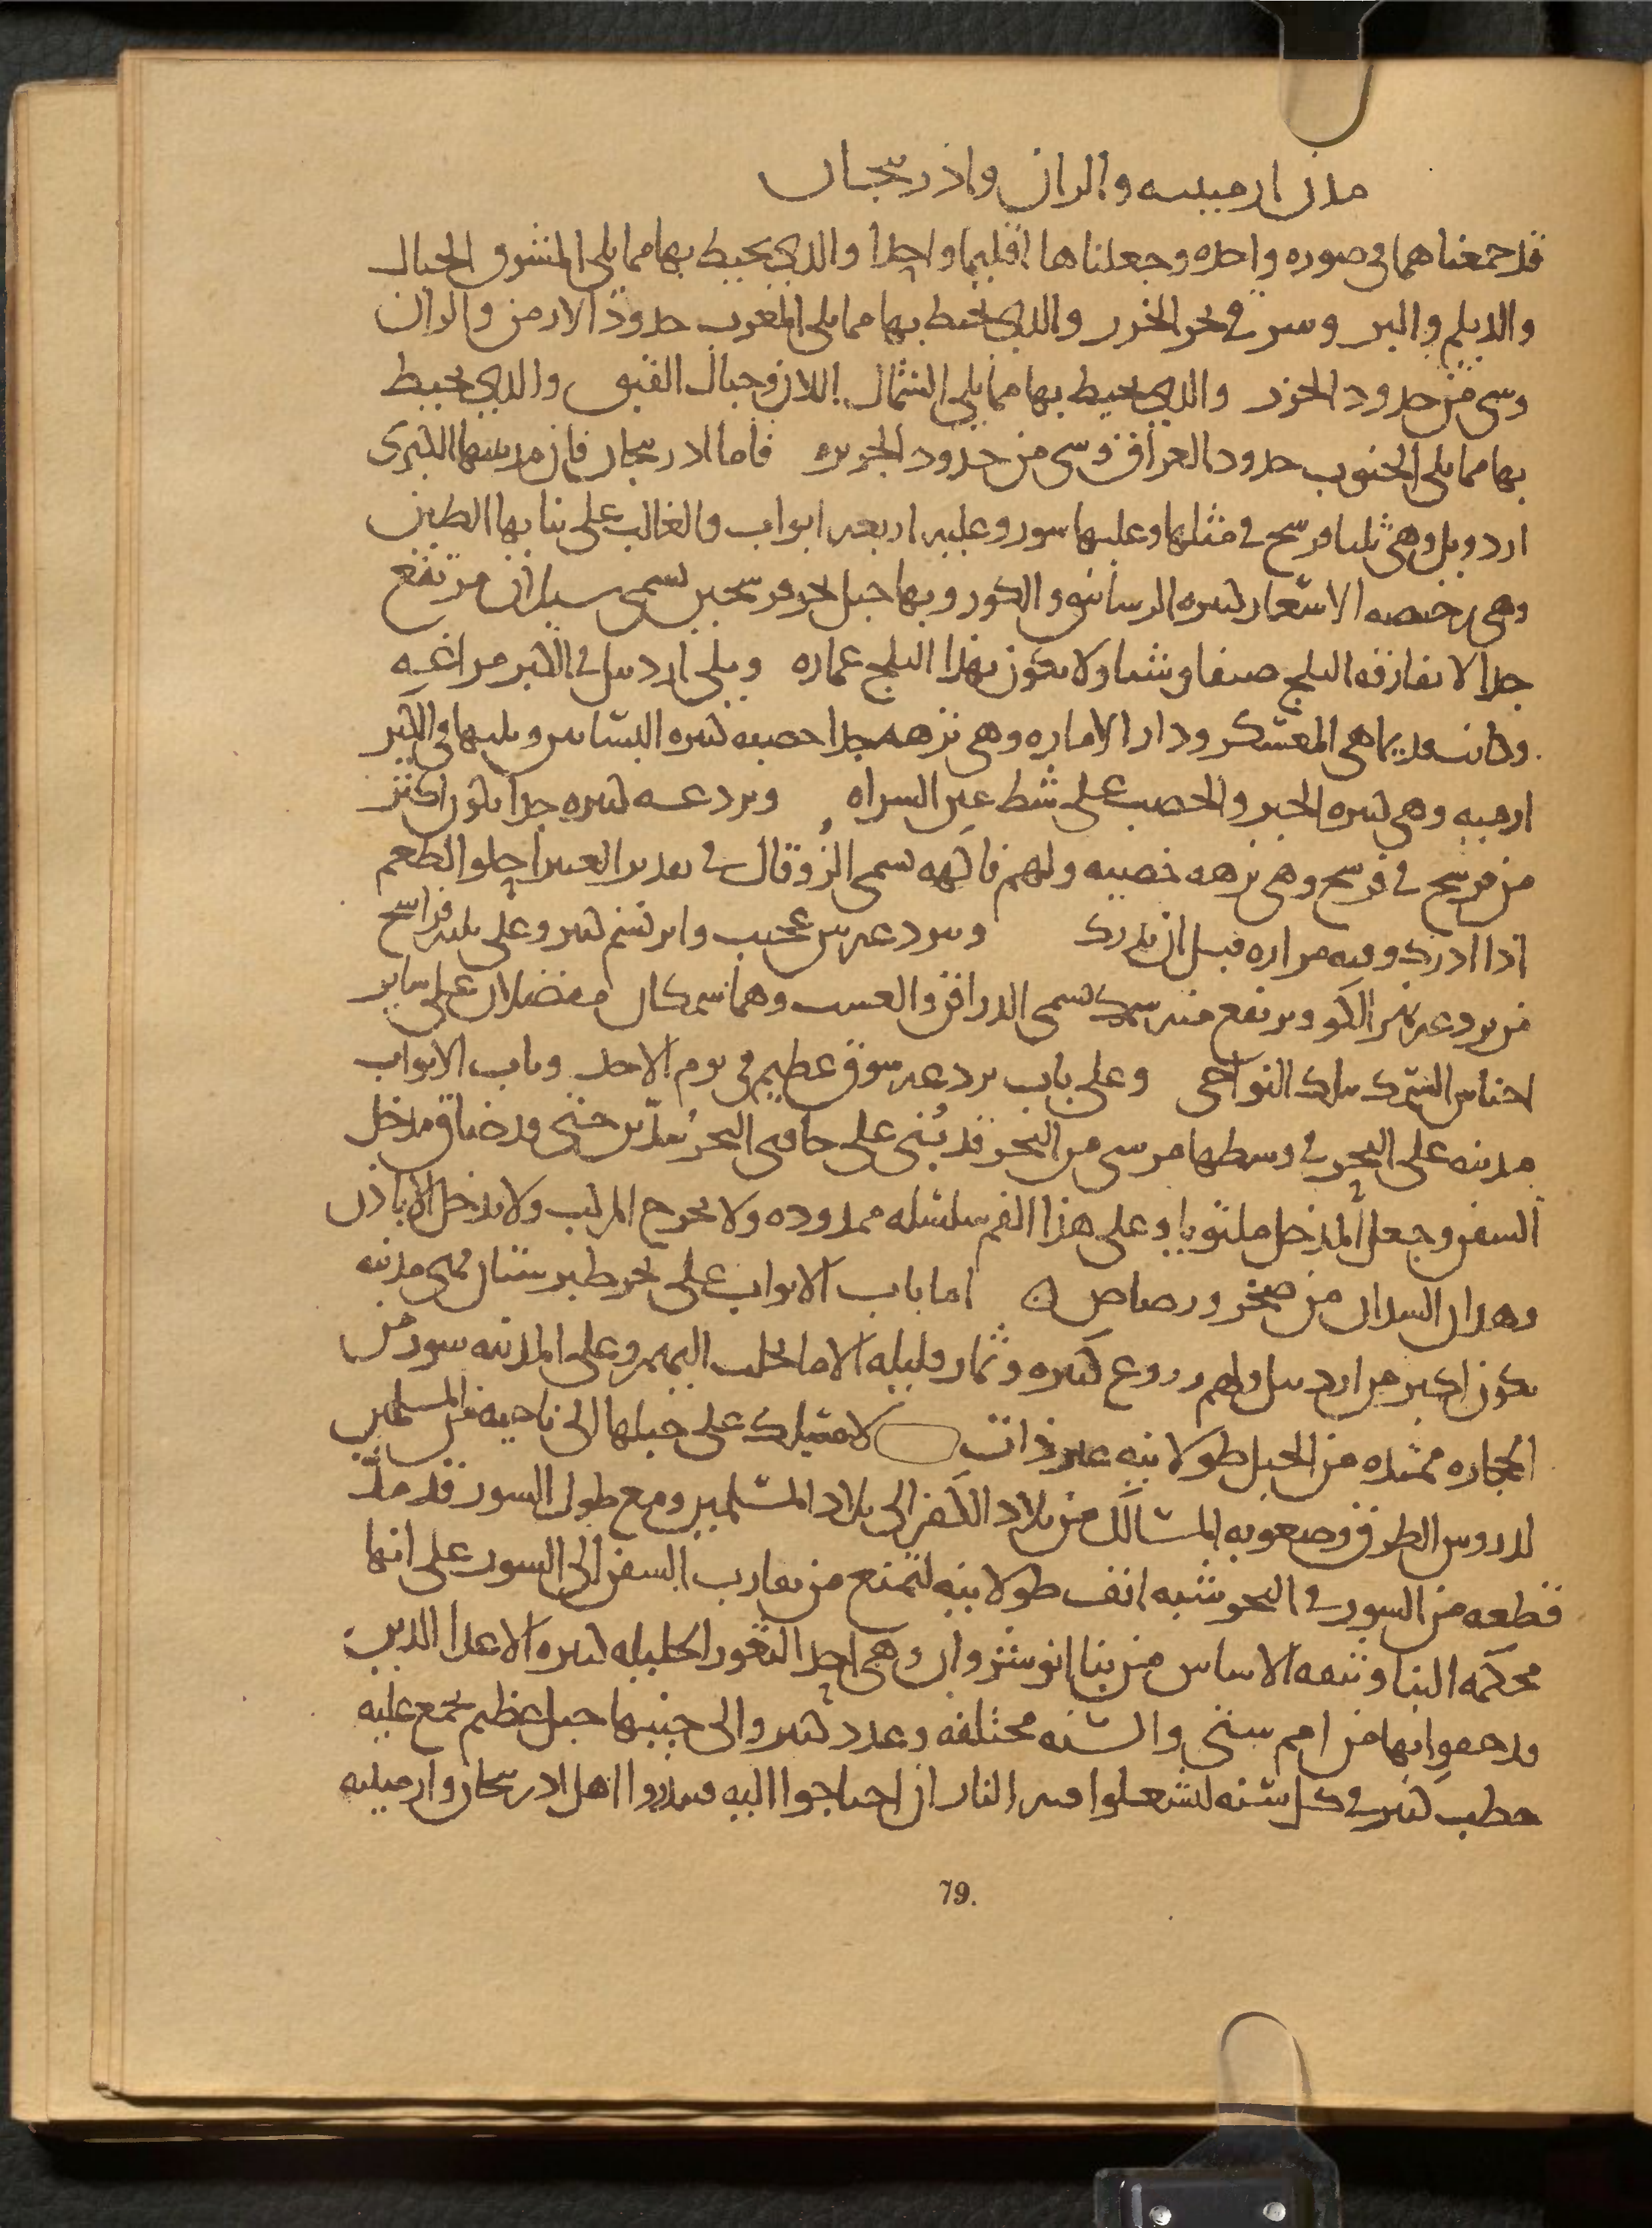 مدن ارمينيه والران واذربيجان
قد جمعناهما فى صوره واحده وجعلناها اقليما واحدا والذي يحيط بها مما يلي المشرق الجبال
والديلم والبحر وسى فى بحر الخزر والذي يحيط بها مما يلي المغرب حدود الارمن والران
وسى من حدود الخزر والذي يحيط بها مما يلي الشمال اللان وجبال القبق والذي يحيط
بها مما يلي الجنوب حدود العراق وسى من حدود الجزيره فاما اذربيجان فان مدينتها الكبرى
اردويل وهي ثلثا فرسخ فى مثلها وعليها سور وعليه اربعه ابواب والغالب على بنايها الطين
وهي رخيصه الاسعار كثيره الرساتيق والكور وبها جبل نحو فرسخين يسمى سبلان مرتفع
جدا لا يفارقه الثلج صيفا وشتا ولا يكون بهذا الثلج عماره ويلي اردبيل فى الكبر مراغه
وكانت قديما هي المعسكر ودار الاماره وهي نزهه جدا خصبه كثيره البساتين ويليها فى الكبر
ارميه وهي كثيره الخير والخصب على شط عين السراه وبردعه كثيره جدا يكون اكثر
من فرسخ فى فرسخ وهي نزهه خصيبه ولهم فاكهه تسمى الزوقال فى تقدير الغبيرا حلو الطعم
اذا ادرك وفيه مراره قبل ان يدرك وببردعه تين عجيب وابرشيم كثير وعلى ثلثه فراسخ
من بردعه نهر الكر ويرتفع منه سمك تسمى الدراقن والعشب وهما سمكان مفضلان على ساير
اجناس السمك بتلك النواحي وعلى باب بردعه سوق عظيم فى يوم الاحد وباب الابواب
مدينه على البحر فى وسطها مرسى من البحر قد بُني على حافتي البحر سدّين حتى قد ضاق مدخل
السفن وجعل المدخل ملتويا وعلى هذا الفم سلسله ممدوده ولا يخرج المركب ولا يدخل الا باذن
وهذان السدان من صخر ورصاص اما باب الابواب على بحر طبرستان فهي مدينه
تكون اكبر من اردبيل ولهم زروع كثيره وثمار قليله الا ما يجلب اليهم وعلى المدينه سور من
الحجاره ممتده من الجبل طولا بنيه غير ذات لا مسلك على جبلها الى ناحيه من المسلمين
لدروس الطرق وصعوبه المسالك من بلاد الكفر الى بلاد المسلمين ومع طول السور قد مدّ
قطعه من السور فى البحر شبه انف طولا بنيه لتمنع من تقارب السفن الى السور على انها
محكمه البنا وثيقه الاساس من بنا انوشروان وهي احد الثغور الجليله كثيره الاعدا الذين
قد حفوا بها من امم شتى والسنه مختلفه وعدد كثير والى جنبها جبل عظيم يجمع عليه
حطب كثير فى كل سنه ليشعلوا فيه النار ان احتاجوا اليه فينذروا اهل اذربيجان وارمينيه
79.